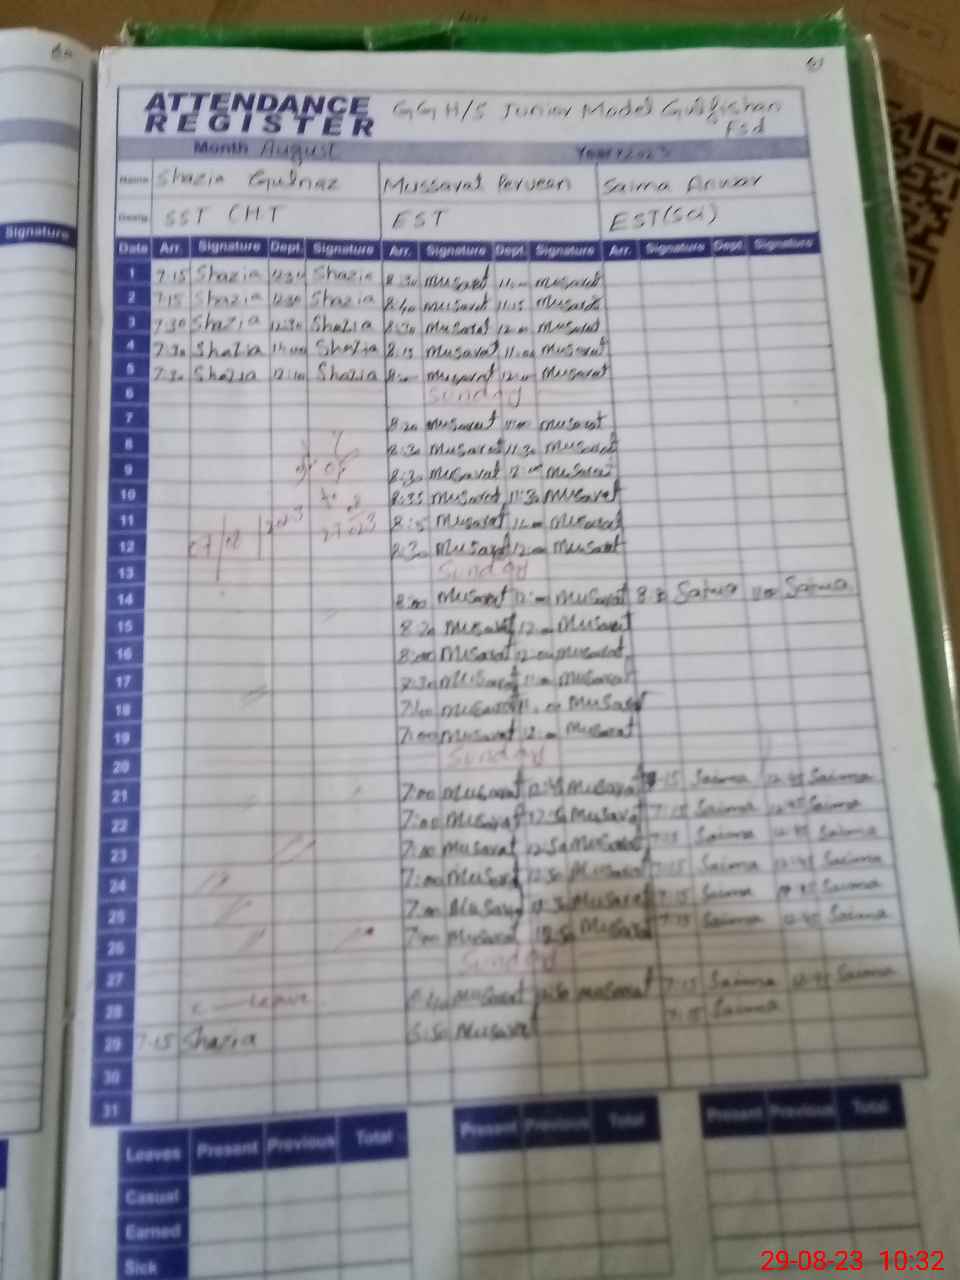 ATTENDANCE REGISTER
GGH/S Junior Model Gulfishan Fsd
Month August Year 2023
Name Shazia Gulnaz Mussarat Perveen Saima Anwar
Desig. SST CHT EST EST(Sci)
Signature
Date Arr. Signature Dept. Signature Arr. Signature Dept. Signature Arr. Signature Dept. Signature
1 7:15 Shazia 12:30 Shazia 8:30 Musarat 11:00 Musarat
2 7:15 Shazia 12:30 Shazia 8:40 Musarat 11:15 Musarat
3 7:30 Shazia 12:30 Shazia 8:30 Musarat 12:00 Musarat
4 7:30 Shazia Shazia 8:15 Musarat 11:00 Musarat
5 7:30 Shazia 12:10 Shazia 8:00 Musarat 12:00 Musarat
6 Sunday
7 8:20 Musarat 11:00 Musarat
8 8:30 Musarat 11:30 Musarat
9 8:30 Musarat 12:00 Musarat
10 8:35 Musarat 11:30 Musarat
11 8:15 Musarat Musarat
12 8:30 Musarat 12:00 Musarat
13 Sunday
14 8:00 Musarat 12:00 Musarat Saima 11:00 Saima
15 8:20 Musarat 12:00 Musarat
16 8:00 Musarat 12:00 Musarat
17 7:30 Musarat 11:00 Musarat
18 Musarat Musarat
19 7:00 Musarat 12:00 Musarat
20 Sunday
21 7:00 Musarat 12:45 Musarat 7:15 Saima 12:45 Saima
22 7:00 Musarat 12:50 Musarat 7:15 Saima 12:45 Saima
23 7:00 Musarat 12:50 Musarat 7:15 Saima 12:45 Saima
24 7:00 Musarat 12:50 Musarat 7:15 Saima 12:45 Saima
25 7:00 Musarat 12:30 Musarat 7:15 Saima 12:45 Saima
26 7:00 Musarat 12:50 Musarat 7:15 Saima 12:45 Saima
27 Sunday
28 c—Leave Musarat Musarat 7:15 Saima 12:45 Saima
29 7:15 Shazia 6:50 Musarat 7:15 Saima
30
31
Leaves Present Previous Total Present Previous Total Present Previous Total
Casual
Earned
Sick
29-08-23 10:32